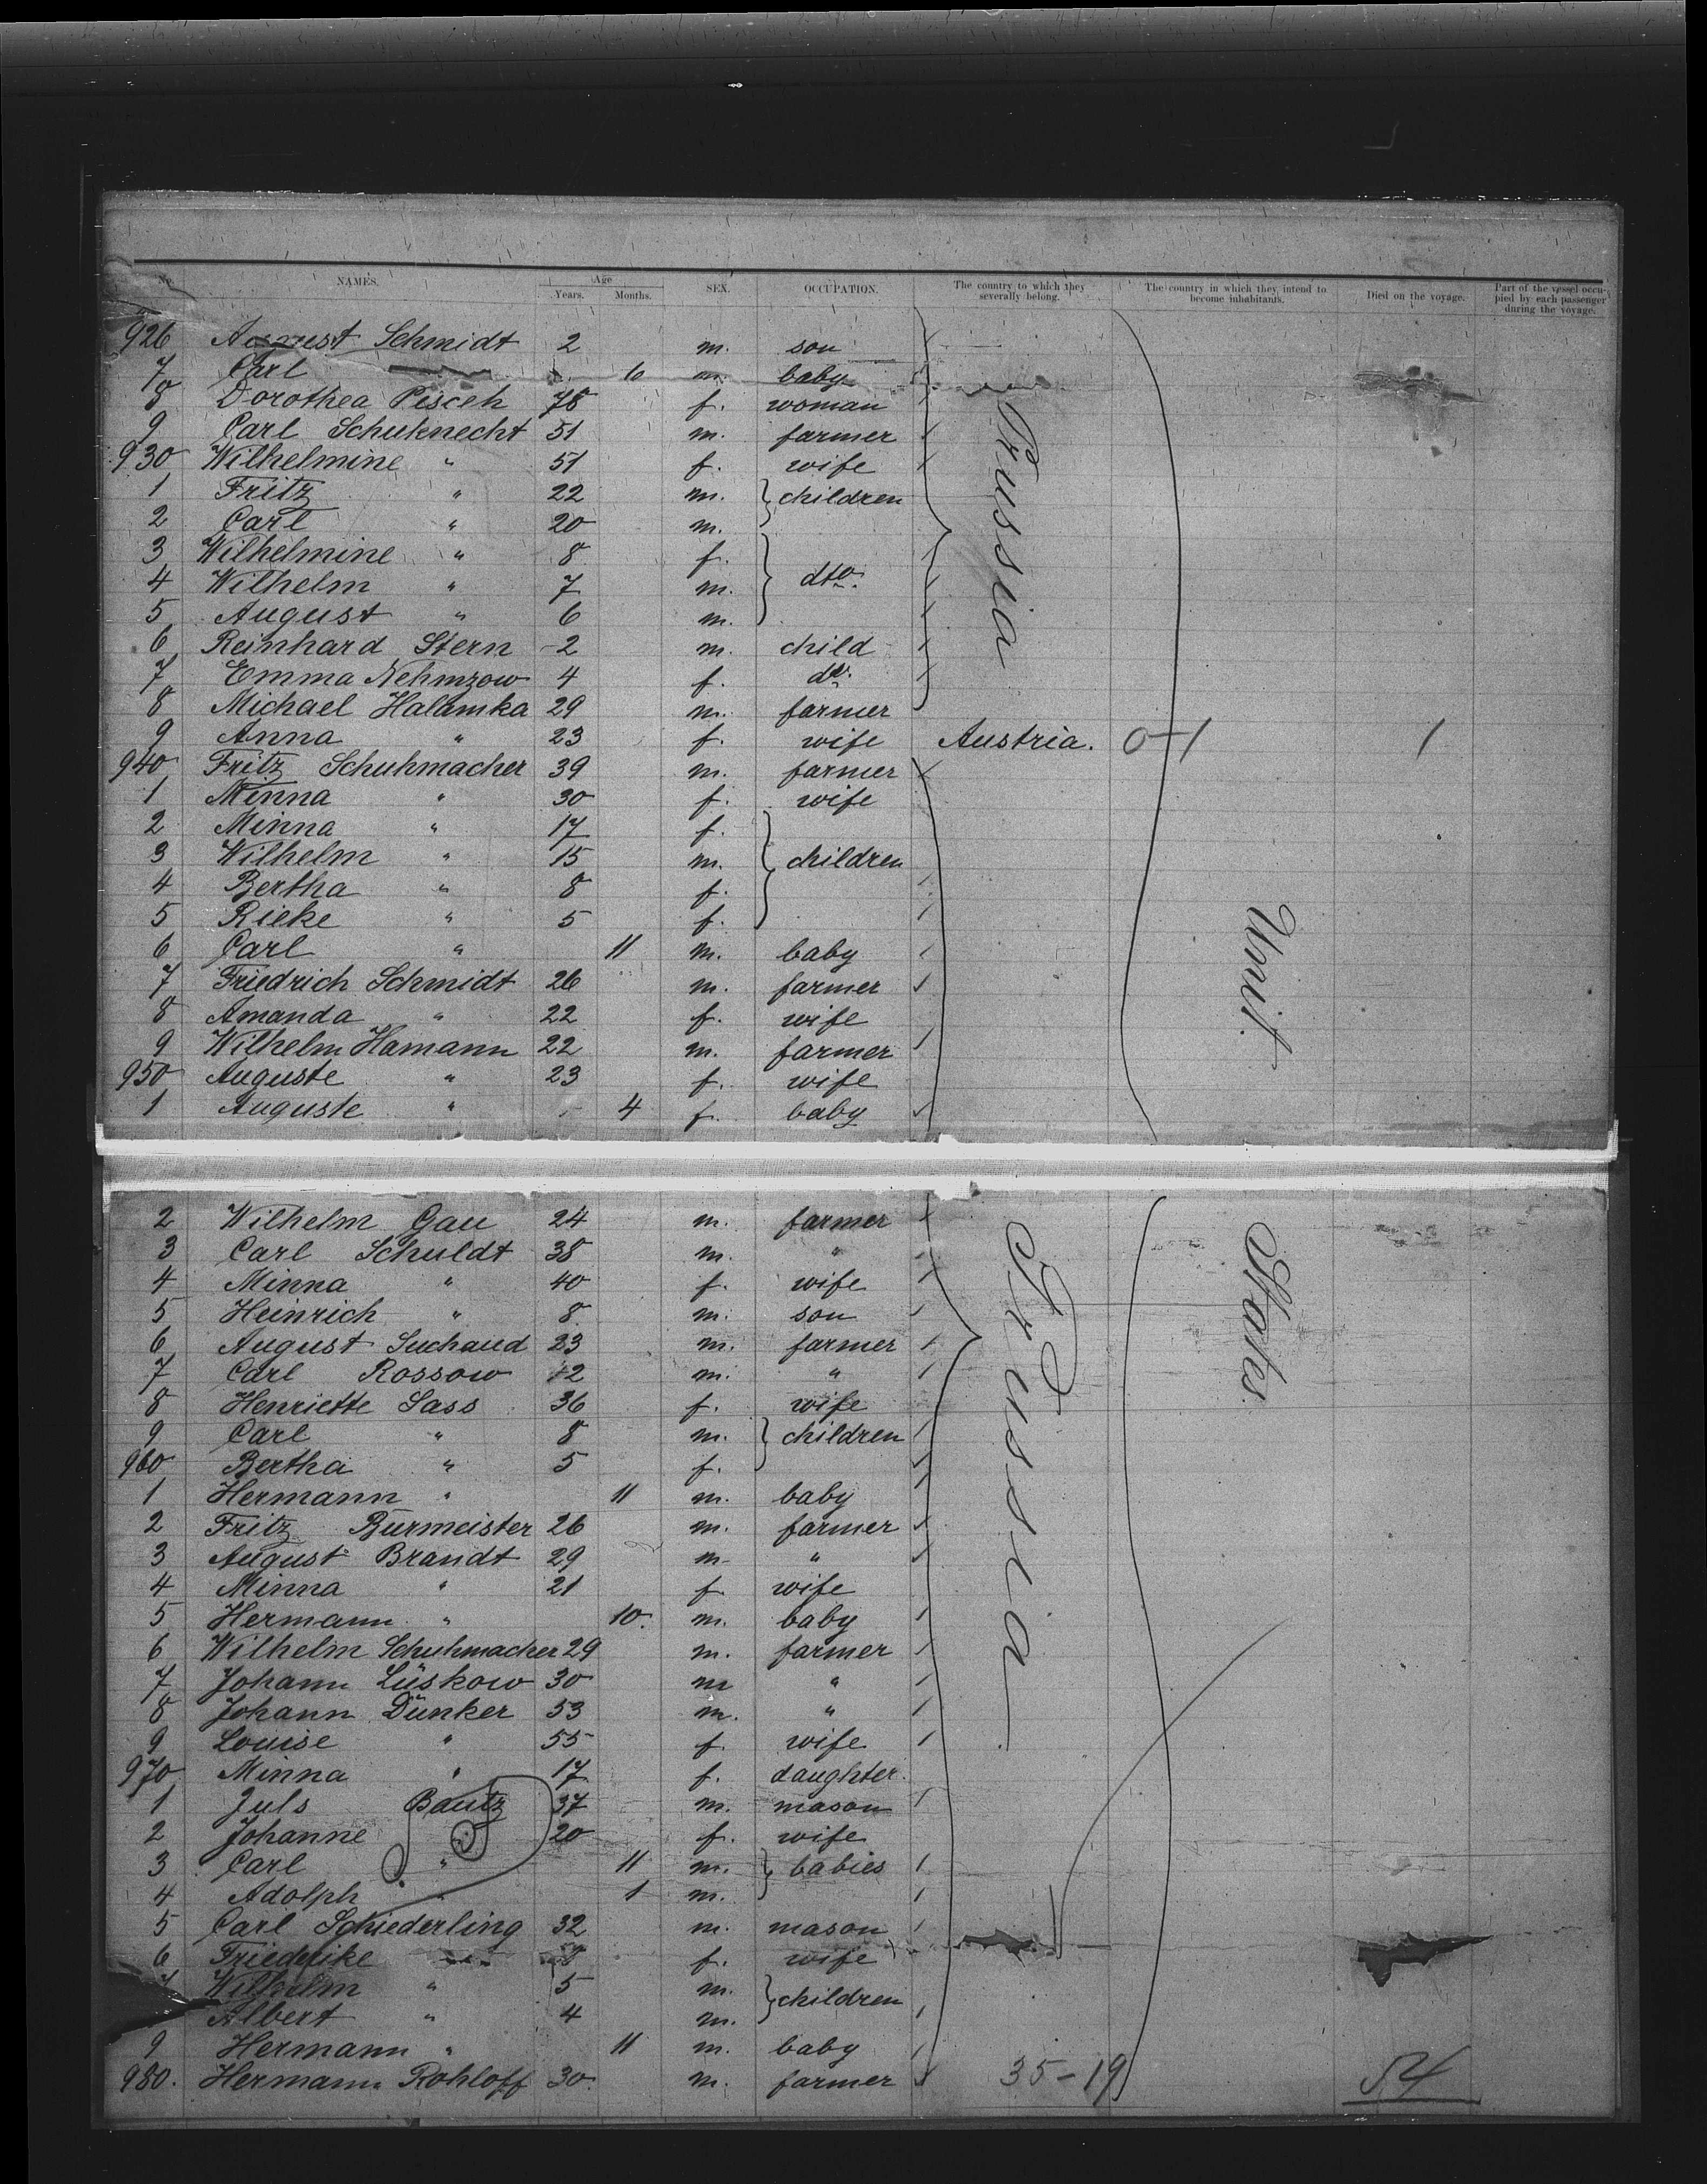 No. NAMES. Age Years. Months. SEX. OCCUPATION. The country to which they severally belong. The country in which they intend to become inhabitants. Died on the voyage. Part of the vessel occupied by each passenger during the voyage.
926 August Schmidt 2 m. son
7 Carl 10 m. baby
8 Dorothea Pisceh 78 f. woman
9 Carl Schuknecht 51 m. farmer
930 Wilhelmine " 51 f. wife
1 Fritz " 22 m. } children
2 Carl " 20 m.
3 Wilhelmine " 8 f.
4 Wilhelm " 7 m. } dto. Prussia
5 August " 6 m.
6 Reinhard Stern 2 m. child
7 Emma Nehmzow 4 f. do.
8 Michael Halamka 29 m. farmer
9 Anna " 23 f. wife Austria. 0-1 1
940 Fritz Schuhmacher 39 m. farmer
1 Minna " 30 f. wife
2 Minna " 17 f.
3 Wilhelm " 15 m. } children
4 Bertha " 8 f.
5 Rieke " 5 f.
6 Carl " 11 m. baby
7 Friedrich Schmidt 26 m. farmer
8 Amanda " 22 f. wife Unit.
9 Wilhelm Hamann 22 m. farmer
950 Auguste " 23 f. wife
1 Auguste " 4 f. baby
2 Wilhelm Gau 24 m. farmer
3 Carl Schuldt 38 m. "
4 Minna " 40 f. wife States
5 Heinrich " 8 m. son
6 August Suchaud 23 m. farmer
7 Carl Rossow 42 m. "
8 Henriette Sass 36 f. wife
9 Carl " 8 m. } children
960 Bertha " 5 f.
1 Hermann " 11 m. baby
2 Fritz Burmeister 26 m. farmer Prussia
3 August Brandt 29 m "
4 Minna " 21 f. wife
5 Hermann " 10. m. baby
6 Wilhelm Schuhmacher 29 m. farmer
7 Johann Lüskow 30 m "
8 Johann Dünker 53 m. "
9 Louise " 55 f. wife
970 Minna " 17 f. daughter.
1 Juls Bautz 37 m. mason
2 Johanne " 20 f. wife
3 Carl " 11 m. } babies
4 Adolph " 1 m.
5 Carl Schiederling 32 m. mason
6 Friederike f. wife
7 Wilhelm " 5 m. } children
Albert " 4 m.
9 Hermann " 11 m. baby
980. Hermann Rohloff 30. m. farmer 35-19 54